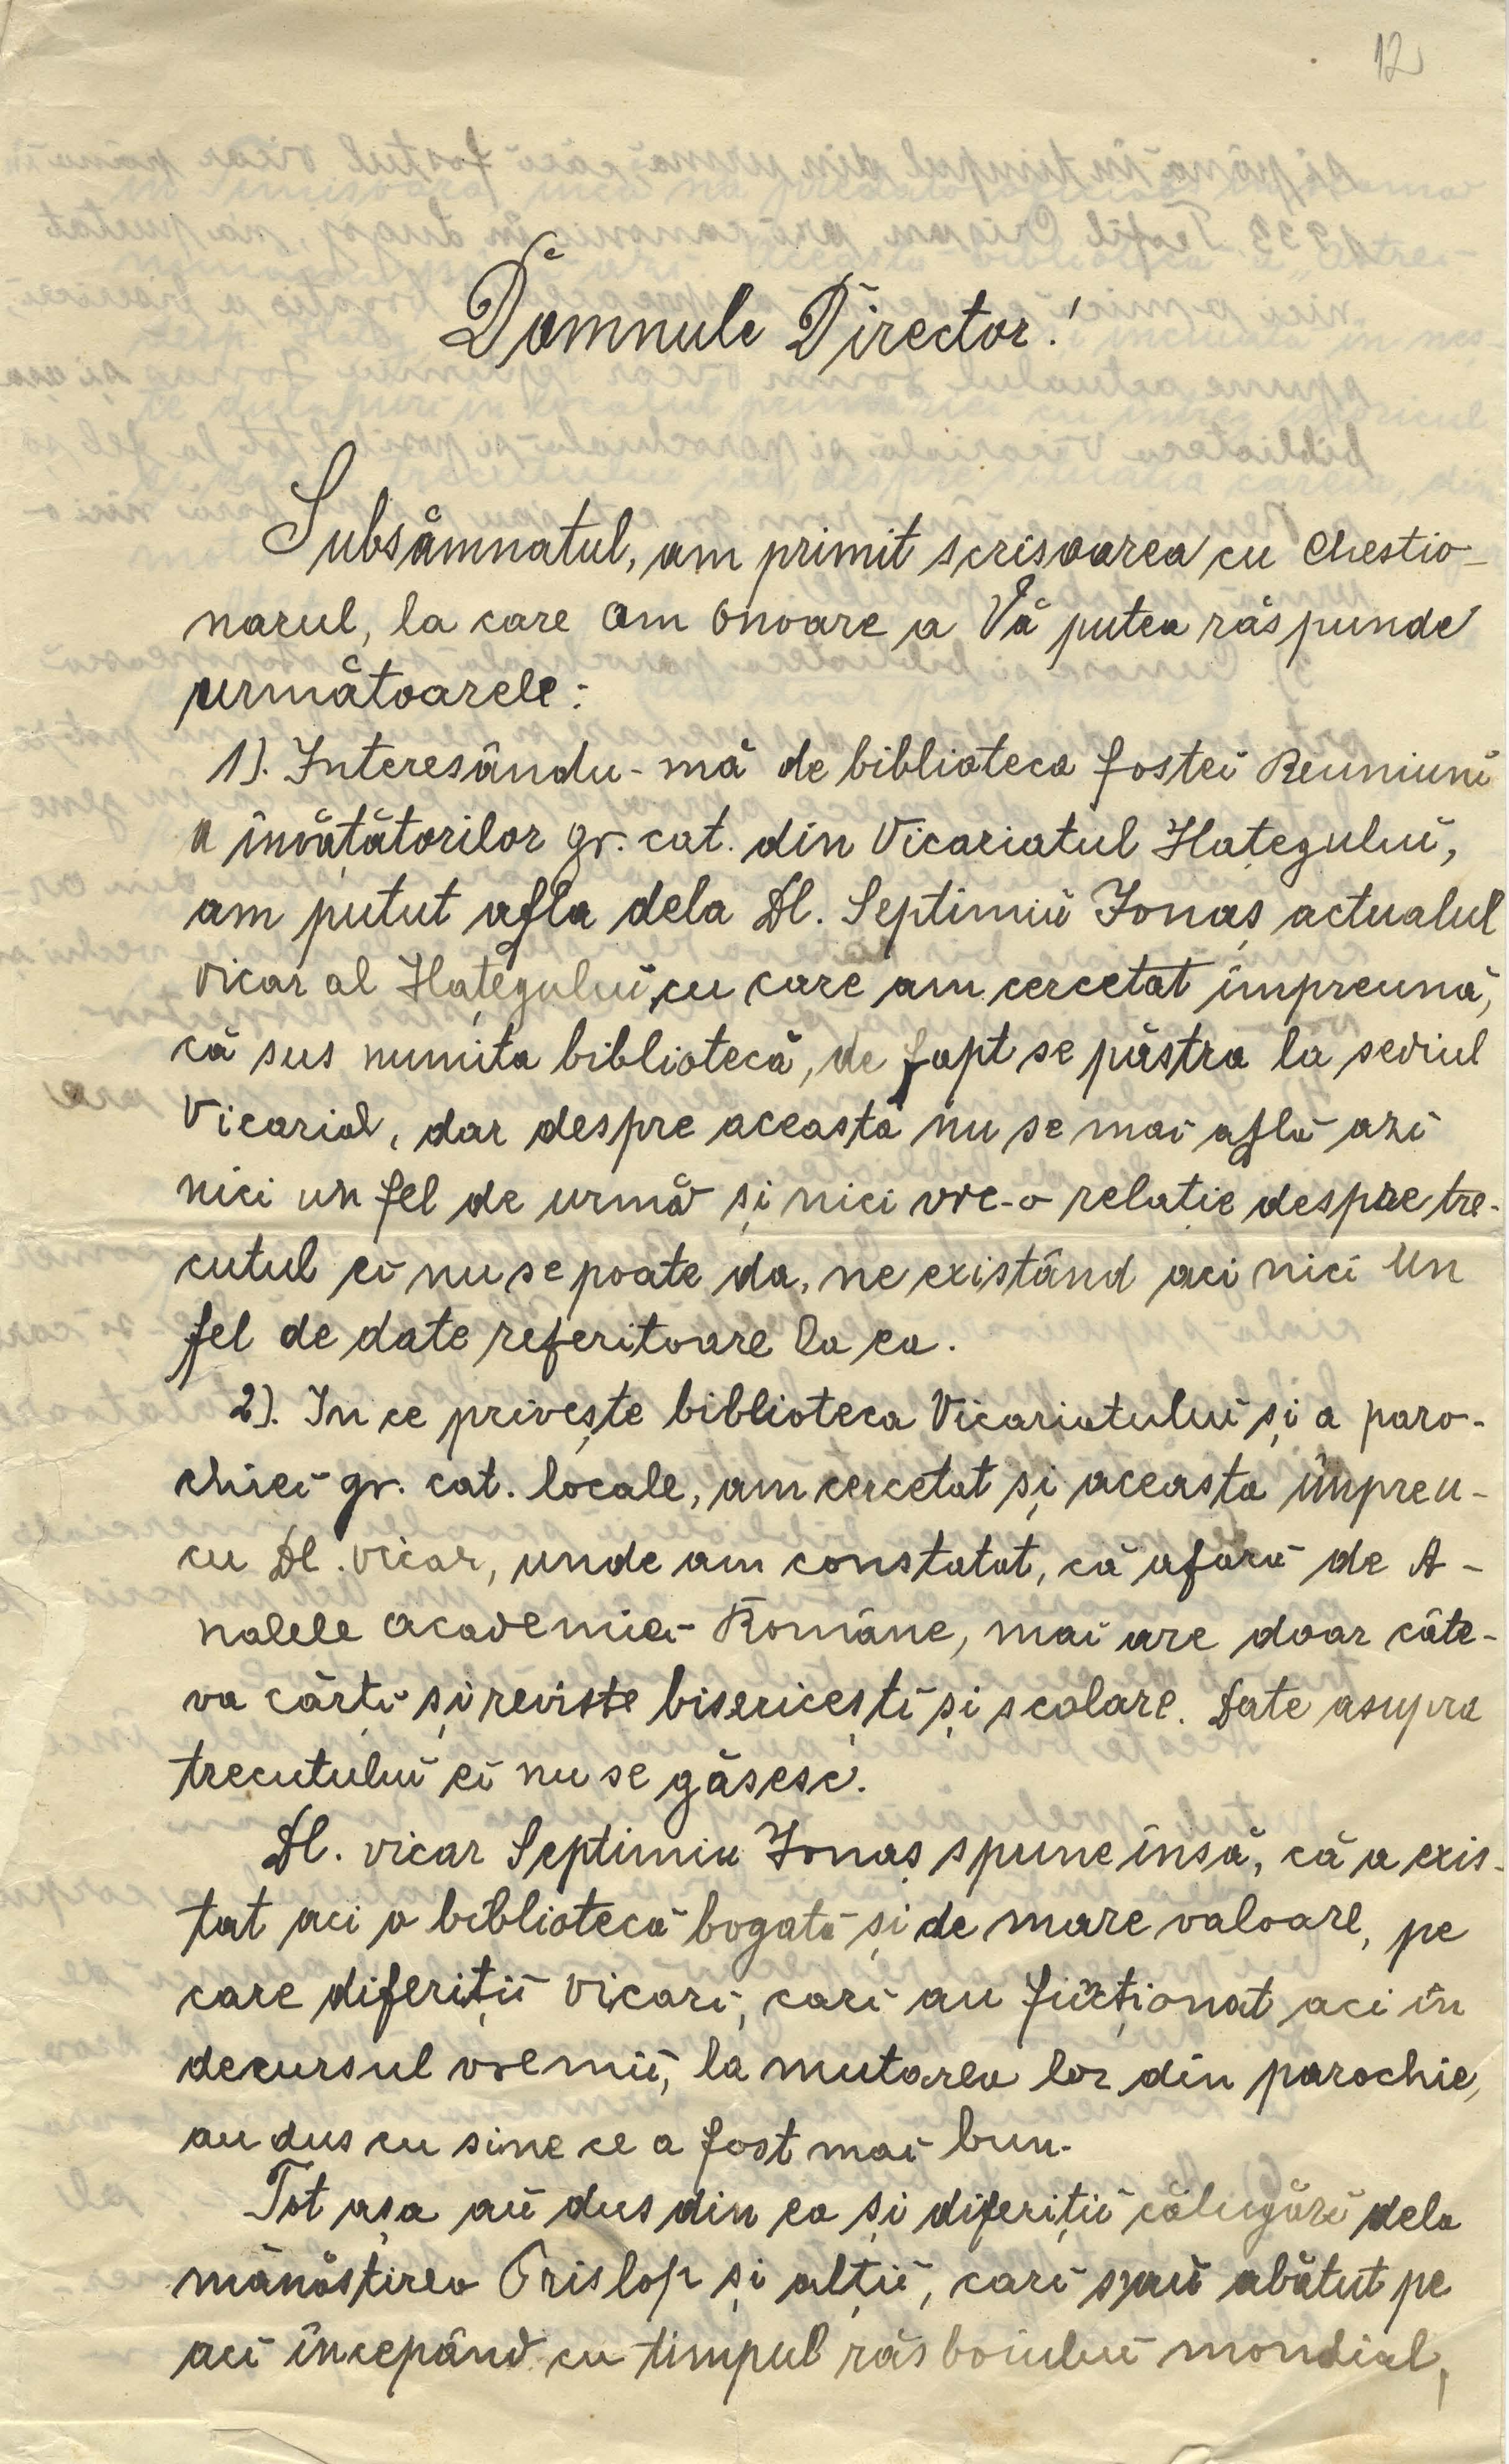 12
Domnule Director!
Subsămnatul, am primit scrisoarea cu chestio-
narul, la care am onoare a Vă putea răspunde
următoarele:
1). Interesându-mă de biblioteca fostei Reuniuni
a învătătorilor gr. cat. din Vicariatul Hațegului,
am putut afla dela Dl. Septimiu Ionaș actualul
vicar al Hațegului, cu care am cercetat împreună,
că sus numita bibliotecă, de fapt se păstra la sediul
Vicarial, dar despre aceasta nu se mai află azi
nici un fel de urmă și nici vre-o relație despre tre-
cutul ei nu se poate da, ne existând aci nici un
fel de date referitoare la ea.
2). In ce privește biblioteca Vicariatului și a paro-
chiei gr. cat. locale, am cercetat și aceasta împreu-
cu Dl. vicar, unde am constatat, că afară de A-
nalele academiei Române, mai are doar câte-
va cărți și reviste bisericești și scolare. Date asupra
trecutului ei nu se găsesc.
Dl. vicar Septimiu Ionaș spune însă, că a exis-
tat aci o bibliotecă bogată și de mare valoare, pe
care diferiții vicari, cari au fucționat aci în
decursul vremii, la mutarea lor din parochie,
au dus cu sine ce a fost mai bun.
Tot așa au dus din ea și diferiții călugări dela
mănăstirea Prislop și alții, cari s'au abătut pe
aci începând cu timpul răsboiului mondial,